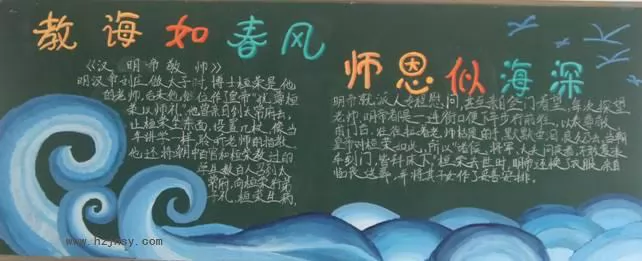 教诲如春风
师恩似海深
《汉明帝敬师》
明汉帝刘庄做太子时,博士桓荣是他
的老师,后来他继位作皇帝"犹尊桓
荣以师礼"他曾亲自到太常府去,
让桓荣坐东面,设置几杖,像当
年讲学一样,聆听老师的指教。
他还将朝中百官和桓荣教过的
学生数百人召到太
常府,向桓荣行弟
子礼。桓荣生病,
明帝就派人专程慰问,甚至亲自登门看望,每次探望
老师,明帝都是一进街口便下车步行前往,以表尊敬。
进门后,往往拉着老师枯瘦的手,默默垂泪,良久乃去。当朝
皇帝对桓荣如此,所以"诸侯、将军、大夫问疾者,不敢复乘
车到门,皆拜床下。"桓荣去世时,明帝还换了衣服,亲自
临丧送葬,并将其子女作了妥善安排。
www.hzjhsy.com